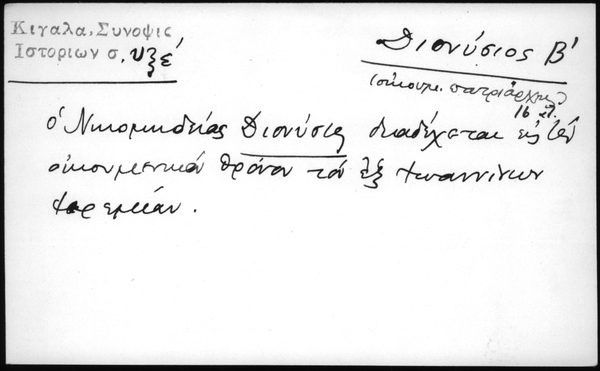 Κιγαλα, Συνοψις
Ιστοριων σ, υξε´
Διονύσιος Β´
(οἰκουμ. πατριάρχης)
16 αἰ.
ὁ Νικομηδείας Διονύσιος διαδέχεται εἰς τὸν
οἰκουμενικὸ θρόνο τὸ ἐξ Ἰωαννίνων
Ἱερεμίαν.